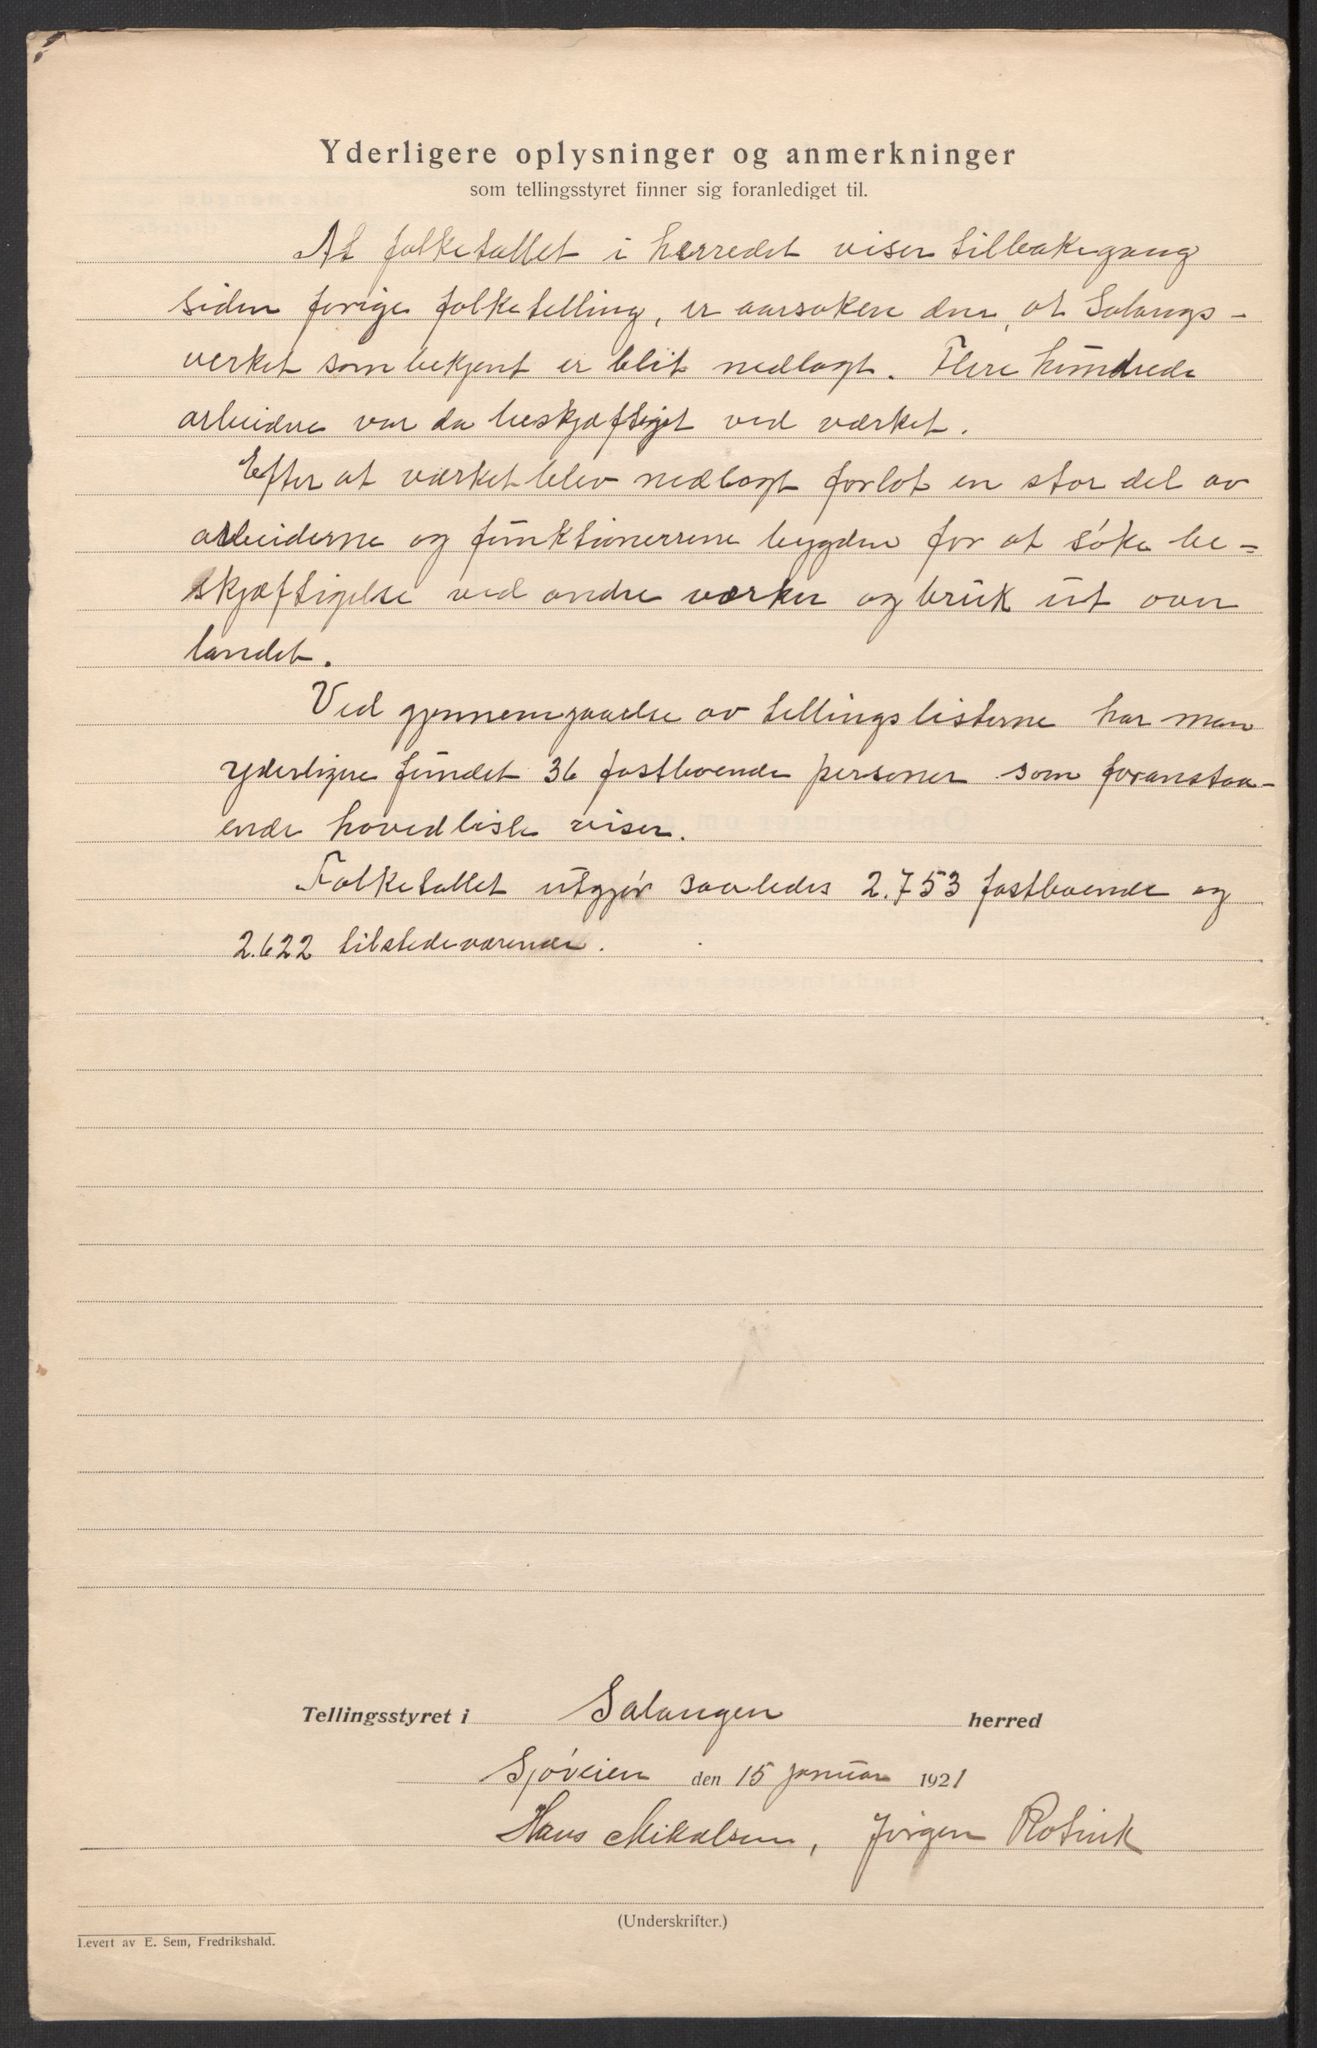 Yderligere oplysninger og anmerkninger
som tellingsstyret finner sig foranlediget til.
At folketallet i herredet viser tilbakegang
siden forige folketelling, er aarsaken den, at Salangs-
verket som bekjent er blit nedlagt. Flere hundrede
arbeidere var da beskjæftiget ved værket.
Efter at værket blev nedlagt forlot en stor del av
arbeiderne og funktionerrene bygden for at söke be-
skjæftigelse ved andre værker og bruk ut over
landet.
Ved gjennemgaaelse av tellingslisterne har man
yderligere fundet 36 fastboende personer som foranstaa-
ende hovedliste viser.
Folketallet utgjør saaledes 2.753 fastboende og
2.622 tilstedeværende.
Tellingsstyret i Salangen herred
Sjöveien den 15 januar 1921
Hans Mikalsen, Jørgen Rotvik
(Underskrifter.)
Levert av E. Sem, Fredrikshald.